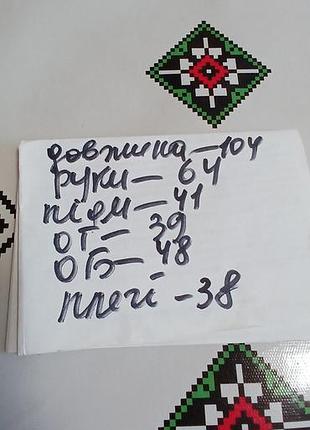 довжина-104
руки-64
підм-41
ОТ-39
ОБ-48
плечі-38